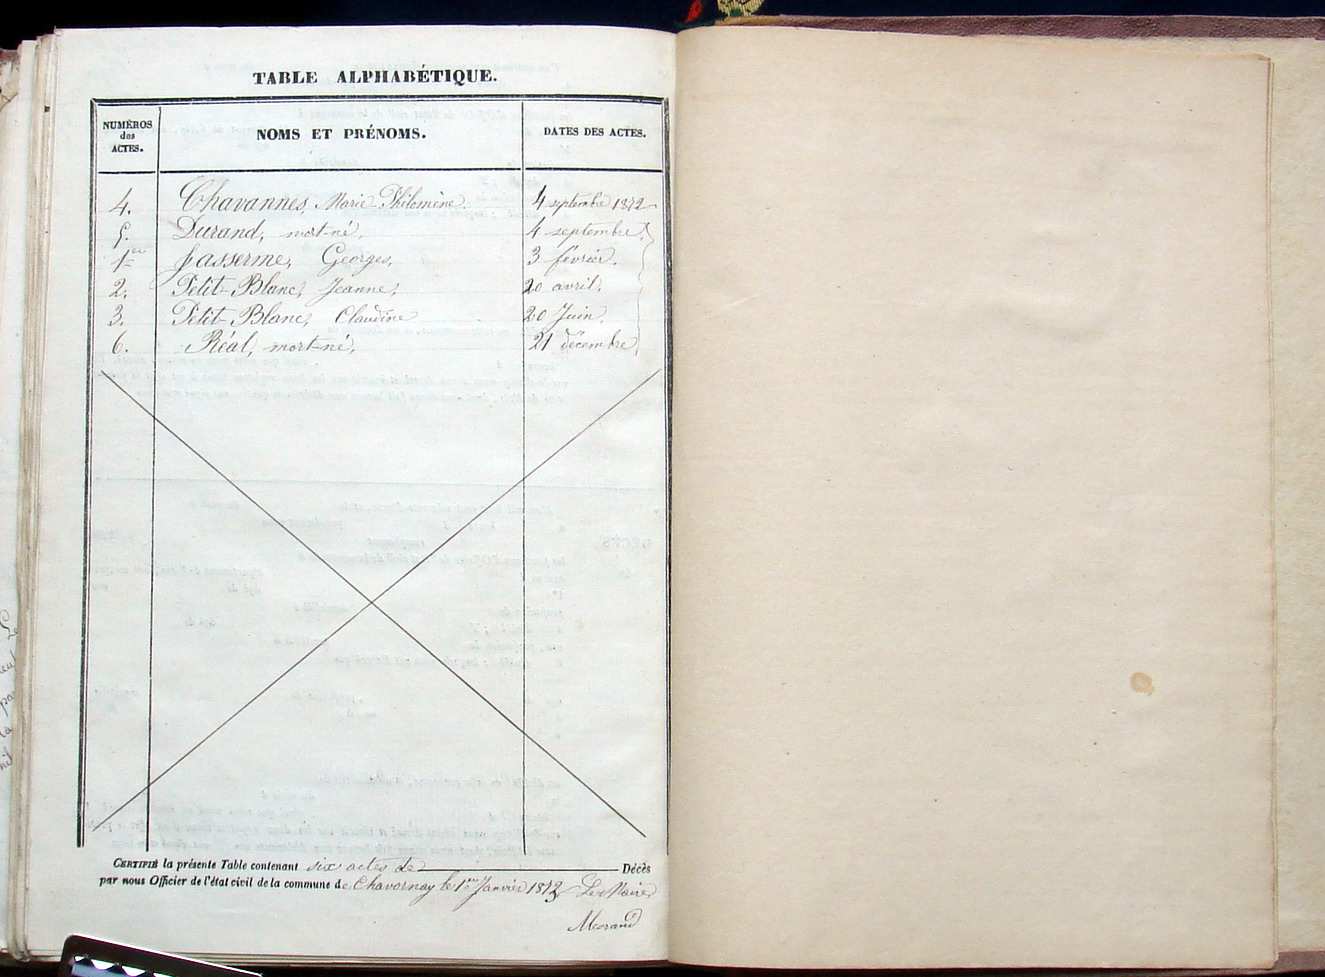 TABLE ALPHABÉTIQUE.
NUMÉROS des ACTES. NOMS ET PRÉNOMS. DATES DES ACTES.
4. Chavannes, Marie Philomène. 4 septembre 1872
5. Durand, mort-né. 4 septembre.
1er Passerme, Georges, 3 février.
2. Petit-Blanc, Jeanne, 20 avril.
3. Petit-Blanc, Claudine 20 Juin.
6. Réal, mort-né, 21 décembre
CERTIFIÉ la présente Table contenant six actes de Décès
par nous Officier de l'état civil de la commune de Chavornay le 1er Janvier 1873 Le Maire
Morand